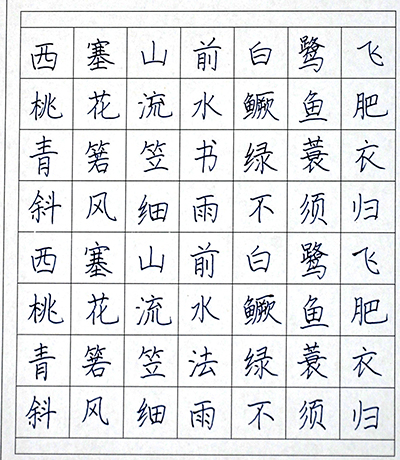 西塞山前白鹭飞
桃花流水鳜鱼肥
青箬笠书绿蓑衣
斜风细雨不须归
西塞山前白鹭飞
桃花流水鳜鱼肥
青箬笠法绿蓑衣
斜风细雨不须归